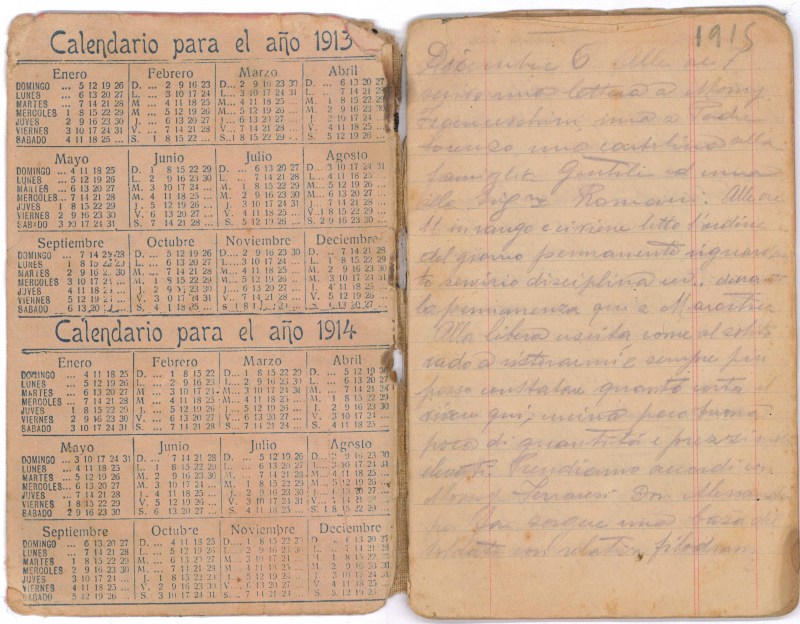 Calendario para el año 1913
Enero Febrero Marzo Abril
DOMINGO ... 5 12 19 26 D. ... 2 9 16 23 D. ... 2 9 16 23 30 D. ... 6 13 20 27
LUNES ... 6 13 20 27 L. ... 3 10 17 24 L. ... 3 10 17 24 31 L. ... 7 14 21 28
MARTES ... 7 14 21 28 M. ... 4 11 18 25 M. ... 4 11 18 25 M. 1 8 15 22 29
MIERCOLES 1 8 15 22 29 M. ... 5 12 19 26 M. ... 5 12 19 26 M. 2 9 16 23 30
JUEVES 2 9 16 23 30 J. ... 6 13 20 27 J. ... 6 13 20 27 J. 3 10 17 24
VIERNES 3 10 17 24 31 V. ... 7 14 21 28 V. ... 7 14 21 28 V. 4 11 18 25
SABADO 4 11 18 25 ... S. 1 8 15 22 S. 1 8 15 22 29 S. 5 12 19 26
Mayo Junio Julio Agosto
DOMINGO ... 4 11 18 25 D. 1 8 15 22 29 D. ... 6 13 20 27 D. ... 3 10 17 24 31
LUNES ... 5 12 19 26 L. 2 9 16 23 30 L. ... 7 14 21 28 L. ... 4 11 18 25
MARTES ... 6 13 20 27 M. 3 10 17 24 M. 1 8 15 22 29 M. ... 5 12 19 26
MIERCOLES ... 7 14 21 28 M. 4 11 18 25 M. 2 9 16 23 30 M. ... 6 13 20 27
JUVES 1 8 15 22 29 J. 5 12 19 26 J. 3 10 17 24 31 J. ... 7 14 21 28
VIERNES 2 9 16 23 30 V. 6 13 20 27 V. 4 11 18 25 V. 1 8 15 22 29
SABADO 3 10 17 24 31 S. 7 14 21 28 S. 5 12 19 26 S. 2 9 16 23 30
Septiembre Octubre Noviembre Deciembre
DOMINGO ... 7 14 21 28 D. ... 5 12 19 26 D. ... 2 9 16 23 30 D. ... 7 14 21 28
LUNES 1 8 15 22 29 L. ... 6 13 20 27 L. ... 3 10 17 24 L. 1 8 15 22 29
MARTES 2 9 16 23 30 M. ... 7 14 21 28 M. ... 4 11 18 25 M. 2 9 16 23 30
MIERCOLES 3 10 17 24 M. 1 8 15 22 29 M. ... 5 12 19 26 M. 3 10 17 24 31
JUEVES 4 11 18 25 J. 2 9 16 23 30 J. ... 6 13 20 27 J. 4 11 18 25
VIERNES 5 12 19 V. 3 10 17 24 31 V. ... 7 14 21 28 V. 5 12 19 26
SABADO 6 13 20 S. 4 11 18 25 S. 1 8 15 22 29 S. 6 13 20 27
Calendario para el año 1914
Enero Febrero Marzo Abril
DOMINGO ... 4 11 18 25 D. 1 8 15 22 D. 1 8 15 22 29 D. ... 5 12 19 26
LUNES ... 5 12 19 26 L. 2 9 16 23 L. 2 9 16 23 30 L. ... 6 13 20 27
MARTES ... 6 13 20 27 M. 3 10 17 24 M. 3 10 17 24 31 M. ... 7 14 21 28
MIERCOLES ... 7 14 21 28 M. 4 11 18 25 M. 4 11 18 25 M. 1 8 15 22 29
JUEVES 1 8 15 22 29 J. 5 12 19 26 J. 5 12 19 26 J. 2 9 16 23 30
VIERNES 2 9 16 23 30 V. 6 13 20 27 V. 6 13 20 27 V. 3 10 17 24
SABADO 3 10 17 24 31 S. 7 14 21 28 S. 7 14 21 28 S. 4 11 18 25
Mayo Junio Julio Agosto
DOMINGO ... 3 10 17 24 31 D. ... 7 14 21 28 D. ... 5 12 19 26 D. ... 2 9 16 23 30
LUNES ... 4 11 18 25 L. 1 8 15 22 29 L. ... 6 13 20 27 L. ... 3 10 17 24 31
MARTES ... 5 12 19 26 M. 2 9 16 23 30 M. ... 7 14 21 28 M. ... 4 11 18 25
MIERCOLES ... 6 13 20 27 M. 3 10 17 24 M. 1 8 15 22 29 M. ... 5 12 19 26
JUEVES ... 7 14 21 28 J. 4 11 18 25 J. 2 9 16 23 30 J. ... 6 13 20 27
VIERNES 1 8 15 22 29 V. 5 12 19 26 V. 3 10 17 24 31 V. ... 7 14 21 28
SABADO 2 9 16 23 30 S. 6 13 20 27 S. 4 11 18 25 S. 1 8 15 22 29
Septiembre Octubre Noviembre Deciembre
DOMINGO ... 6 13 20 27 D. ... 4 11 18 25 D. 1 8 15 22 29 D. ... 6 13 20 27
LUNES ... 7 14 21 28 L. ... 5 12 19 26 L. 2 9 16 23 30 L. ... 7 14 21 28
MARTES 1 8 15 22 29 M. ... 6 13 20 27 M. 3 10 17 24 M. 1 8 15 22 29
MIERCOLES 2 9 16 23 30 M. ... 7 14 21 28 M. 4 11 18 25 M. 2 9 16 23 30
JUEVES 3 10 17 24 J. 1 8 15 22 29 J. 5 12 19 26 J. 3 10 17 24 31
VIERNES 4 11 18 25 V. 2 9 16 23 30 V. 6 13 20 27 V. 4 11 18 25
SABADO 5 12 19 26 S. 3 10 17 24 31 S. 7 14 21 28 S. 5 12 19 26
1915
Dicembre 6 Alle ore 7
una lettera a Mons
una a Padre
Lorenzo una cartolina alla
famiglia Gentili ed una
alla Sig.ra Romani. Alle ore
11 in rango e ci viene letto l'ordine
del giorno permanente riguardo
servizio disciplina durante
la permanenza qui a Marostica
Alla libera uscita come al solito
vado a ristorarmi e sempre più
posso constatare quanto costa il
vivere qui, cucina poco buona
poca di quantità e prezzi
elevati. Prendiamo accordi con
Mons Don
sorgue una casa del
soldato con relativa filodram